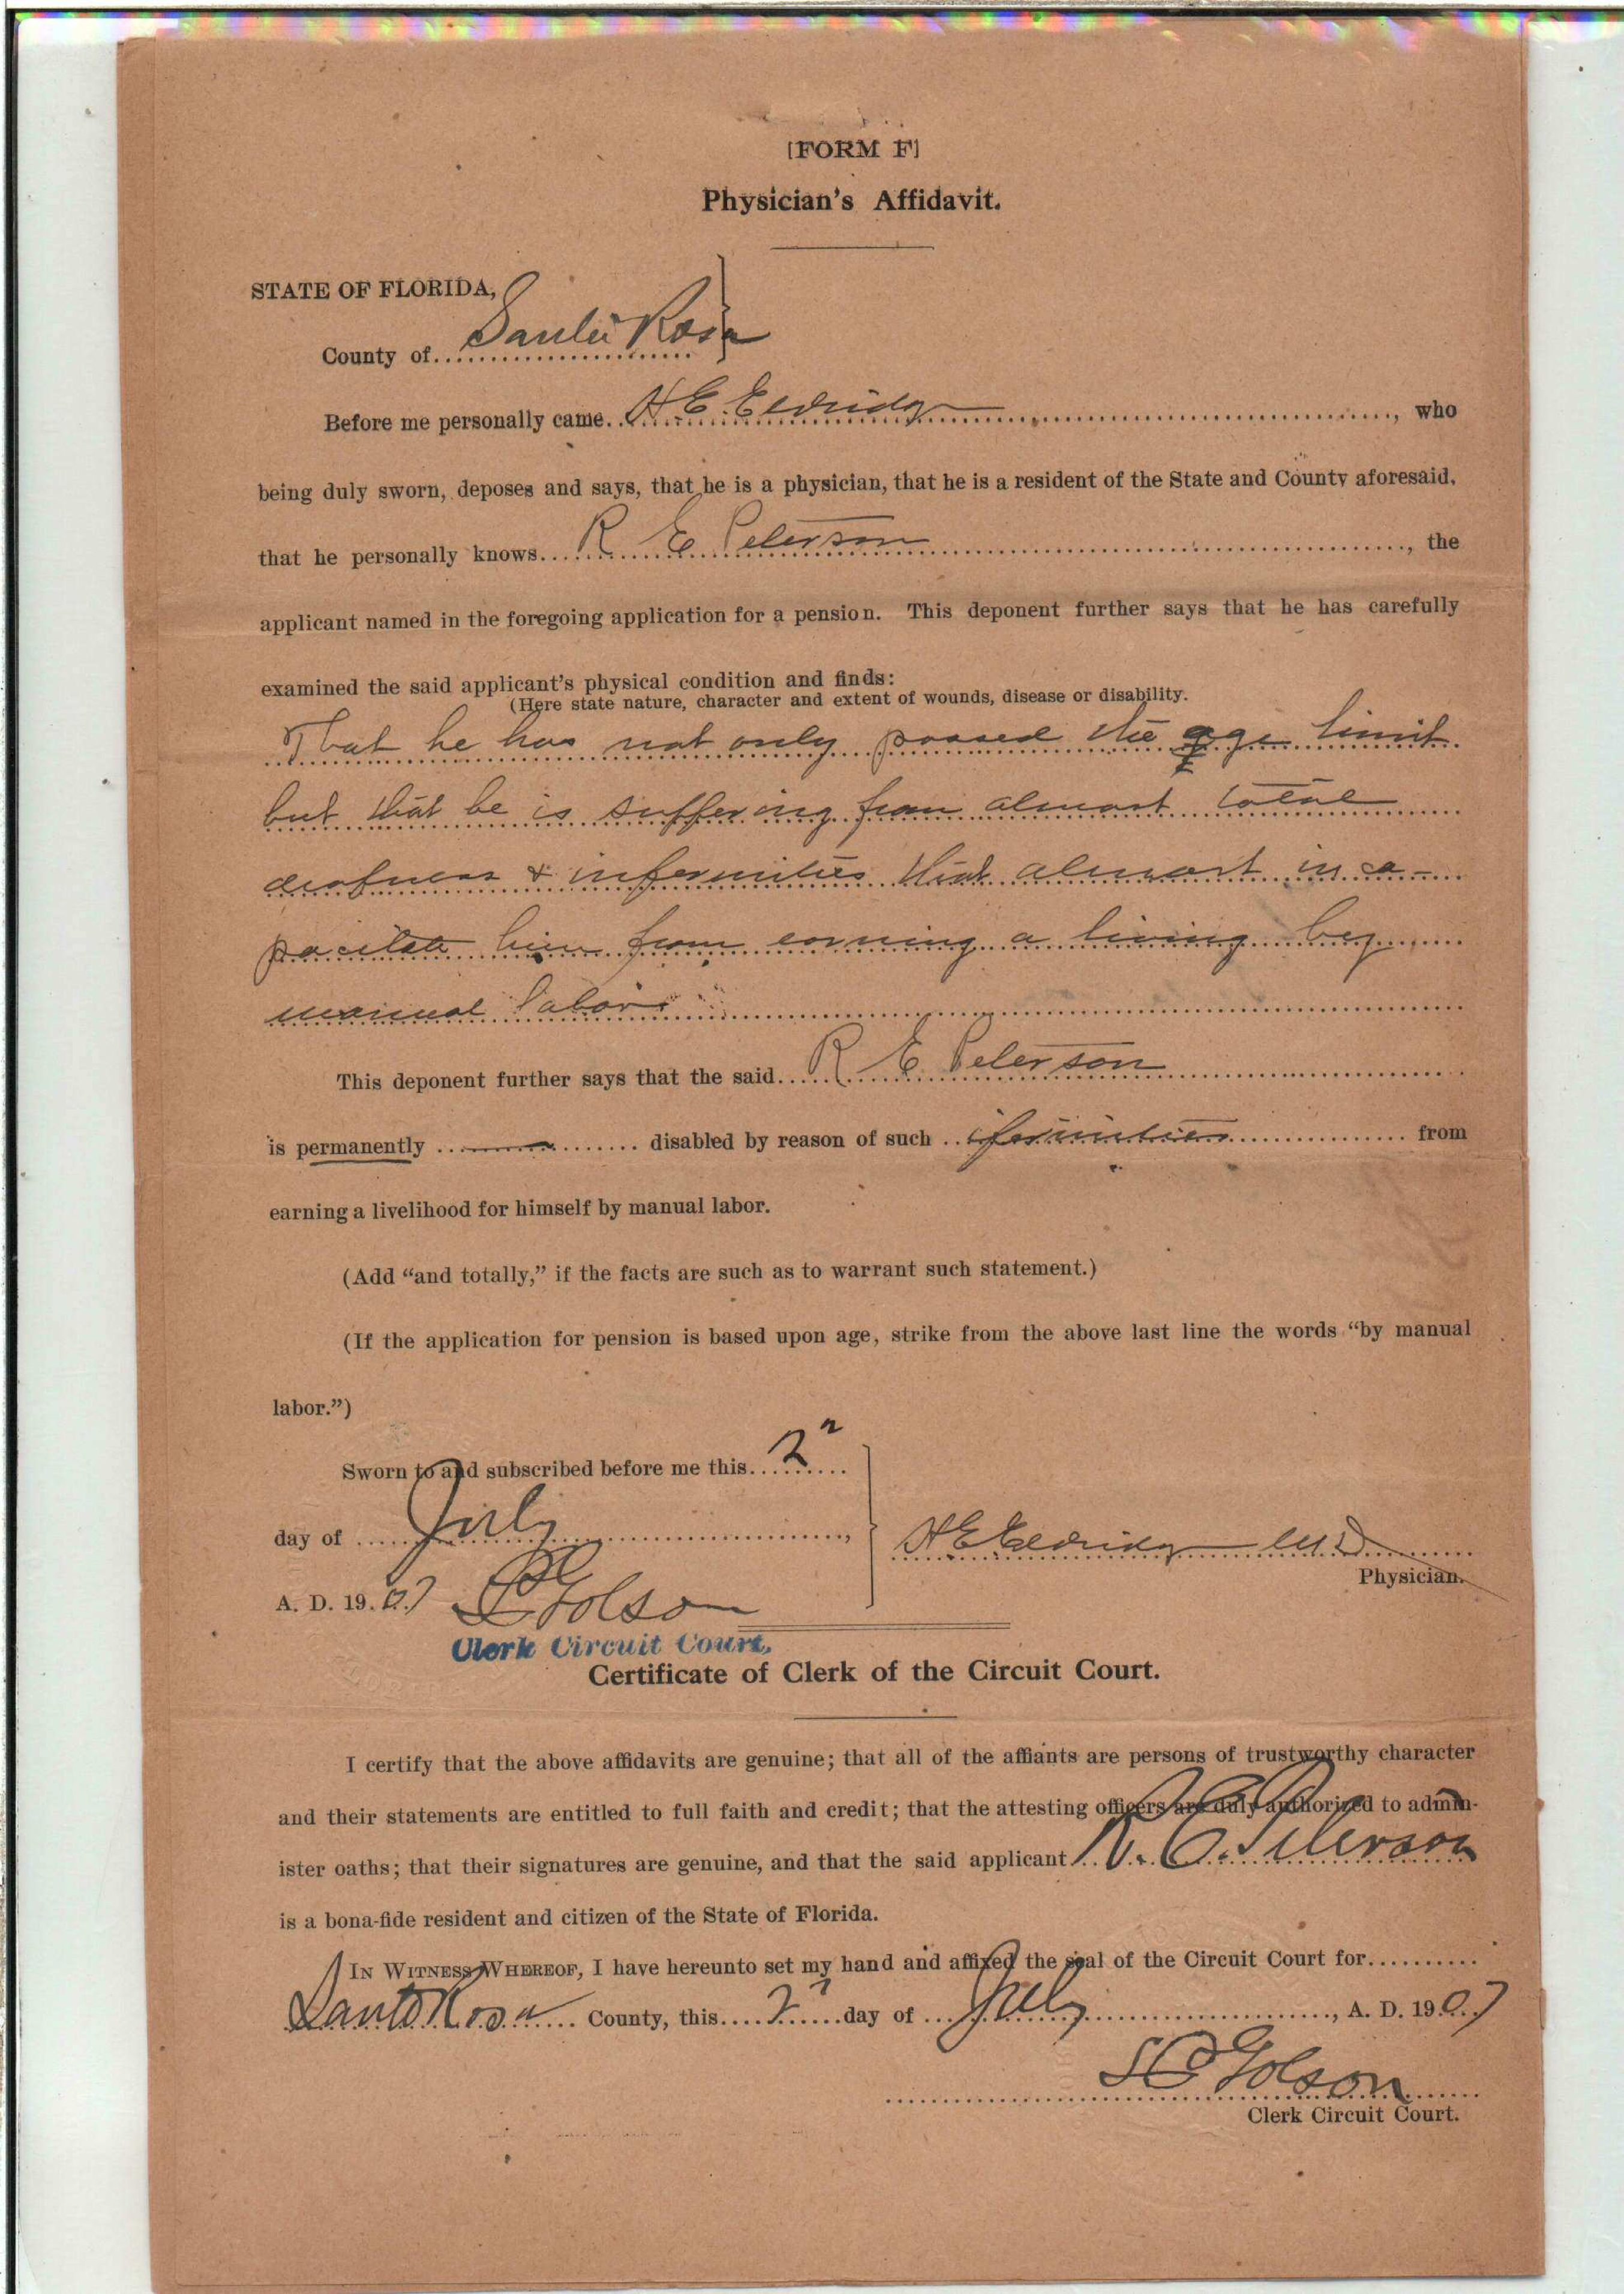 [FORM F]
Physician's Affidavit.
STATE OF FLORIDA,
County of Santa Rosa
Before me personally came H E Eldridge, who
being duly sworn, deposes and says, that he is a physician, that he is a resident of the State and County aforesaid,
that he personally knows R E Peterson, the
applicant named in the foregoing application for a pension. This deponent further says that he has carefully
examined the said applicant's physical condition and finds:
(Here state nature, character and extent of wounds, disease or disability.
That he has not only passed the age limit
but that he is suffering from almost total
deafness & infirmities that almost inca-
pacitate him from earning a living by
manual labor.
This deponent further says that the said R E Peterson
is permanently disabled by reason of such ifirmities from
earning a livelihood for himself by manual labor.
(Add “and totally,” if the facts are such as to warrant such statement.)
(If the application for pension is based upon age, strike from the above last line the words “by manual
labor.”)
Sworn to and subscribed before me this 2"
day of July,
H E Eldridge M.D.
Physician.
A. D. 1907 Golson
Clerk Circuit Court,
Certificate of Clerk of the Circuit Court.
I certify that the above affidavits are genuine; that all of the affiants are persons of trustworthy character
and their statements are entitled to full faith and credit; that the attesting officers are duly authorized to admin-
ister oaths; that their signatures are genuine, and that the said applicant R. E. Peterson
is a bona-fide resident and citizen of the State of Florida.
IN WITNESS WHEREOF, I have hereunto set my hand and affixed the seal of the Circuit Court for
Santa Rosa County, this 2" day of July, A. D. 1907
Golson
Clerk Circuit Court.